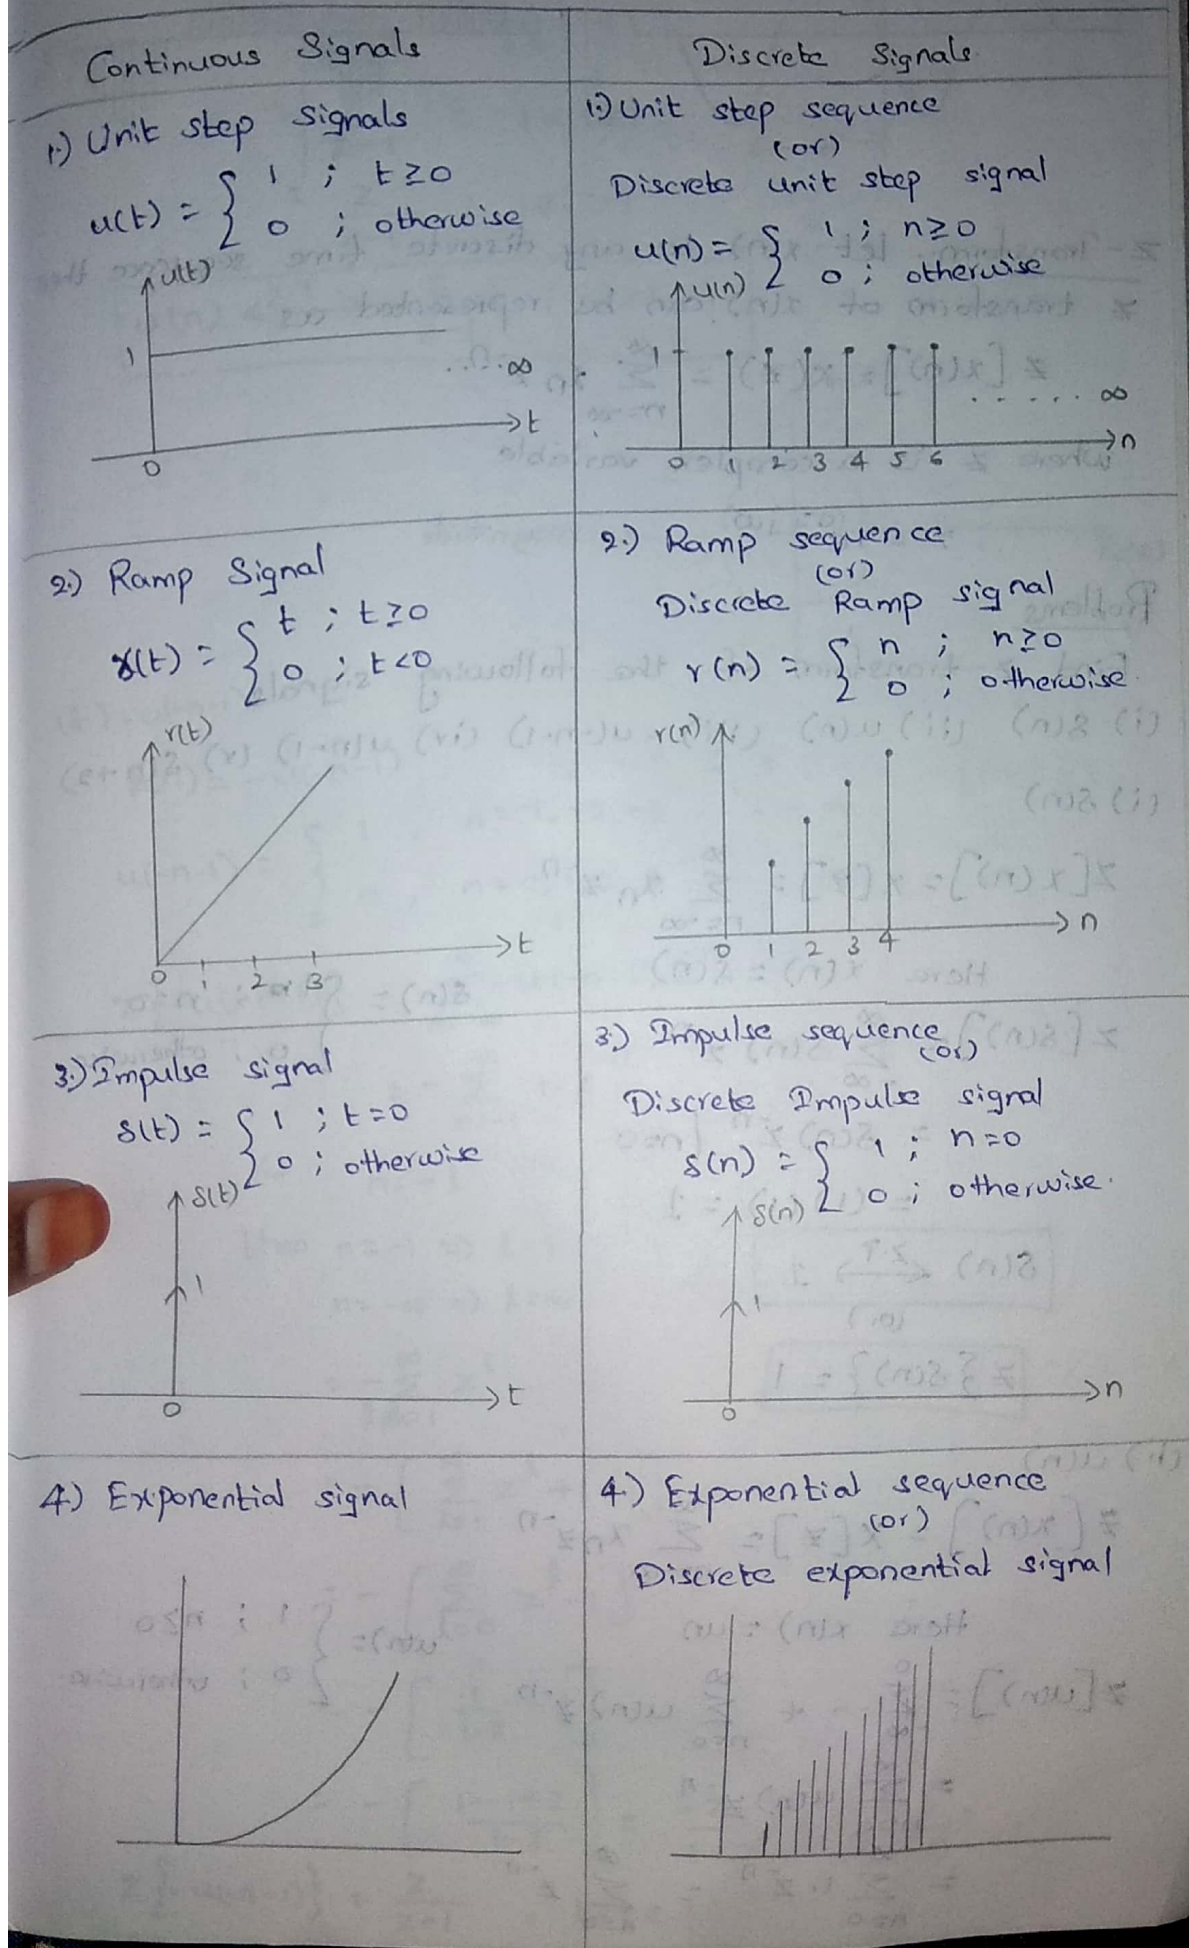 Continuous Signals
1.) Unit step signals
u(t) = { 1 ; t ≥ 0
0 ; otherwise
u(t)
1
...∞
t
0
2.) Ramp Signal
r(t) = { t ; t ≥ 0
0 ; t < 0
r(t)
t
0 1 2 3
3.) Impulse signal
δ(t) = { 1 ; t = 0
0 ; otherwise
δ(t)
1
t
0
4.) Exponential signal
Discrete Signals
1.) Unit step sequence
(or)
Discrete unit step signal
u(n) = { 1 ; n ≥ 0
0 ; otherwise
u(n)
1
...... ∞
n
0 1 2 3 4 5 6
2.) Ramp sequence
(or)
Discrete Ramp signal
r(n) = { n ; n ≥ 0
0 ; otherwise
r(n)
n
0 1 2 3 4
3.) Impulse sequence
(or)
Discrete Impulse signal
δ(n) = { 1 ; n = 0
0 ; otherwise.
δ(n)
1
n
0
4.) Exponential sequence
(or)
Discrete exponential signal